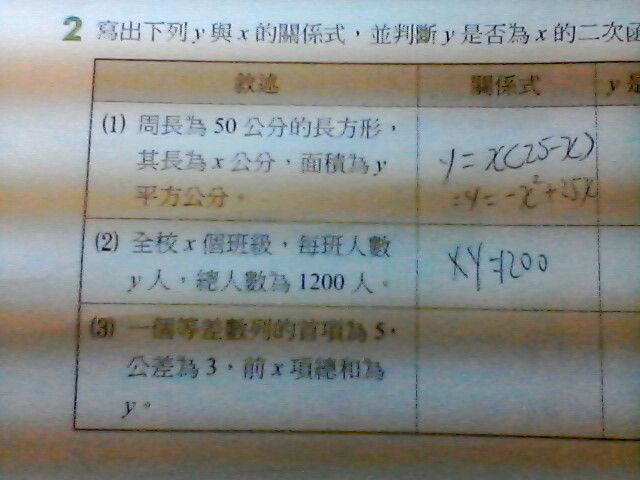 2 寫出下列 y 與 x 的關係式，並判斷 y 是否為 x 的二次函
敘述 關係式 y 是
(1) 周長為 50 公分的長方形，
其長為 x 公分，面積為 y
平方公分。
y = x(25-x)
= y = -x²+25x
(2) 全校 x 個班級，每班人數
y 人，總人數為 1200 人。
xy=1200
(3) 一個等差數列的首項為 5，
公差為 3，前 x 項總和為
y。